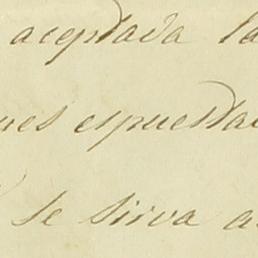 aceptada la
nes espuestas
se sirva a